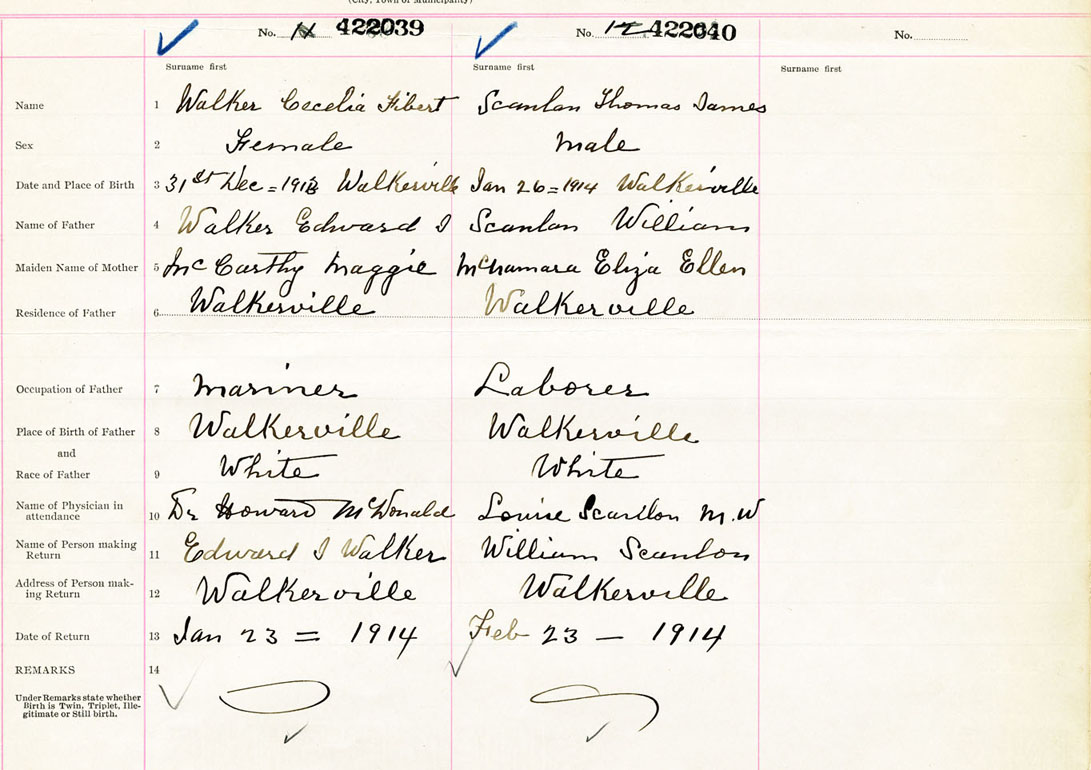 (City, Town or Municipality)
No. 11 422039 No. 12 422040 No.
Surname first Surname first Surname first
Name 1 Walker Cecelia Fibert Scanlan Thomas James
Sex 2 Female Male
Date and Place of Birth 3 31st Dec = 1913 Walkerville Jan 26 = 1914 Walkerville
Name of Father 4 Walker Edward J Scanlan William
Maiden Name of Mother 5 McCarthy Maggie McNamara Eliza Ellen
Residence of Father 6 Walkerville Walkerville
Occupation of Father 7 Mariner Laborer
Place of Birth of Father 8 Walkerville Walkerville
and
Race of Father 9 White White
Name of Physician in
attendance 10 Dr Howard McDonald Louise Scanlon M.W
Name of Person making
Return 11 Edward J Walker William Scanlon
Address of Person mak-
ing Return 12 Walkerville Walkerville
Date of Return 13 Jan 23 = 1914 Feb 23 — 1914
REMARKS 14
Under Remarks state whether
Birth is Twin, Triplet, Ille-
gitimate or Still birth.